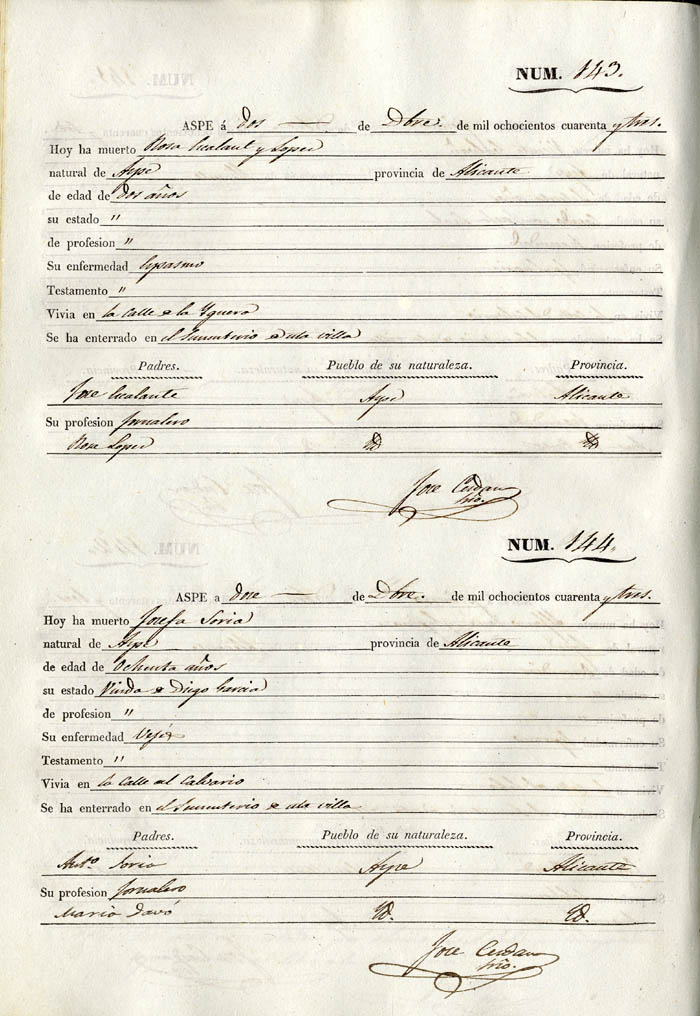 NUM. 143.
ASPE á dos de Dbre. de mil ochocientos cuarenta y tres.
Hoy ha muerto Rosa y Lopez
natural de Aspe provincia de Alicante
de edad de dos años
su estado "
de profesion "
Su enfermedad Espasmo
Testamento "
Vivia en la Calle de la Yguera
Se ha enterrado en el Sementerio de esta villa
Padres. Pueblo de su naturaleza. Provincia.
Jose Aspe Alicante
Su profesion Jornalero
Rosa Lopez Yd Yd
Jose Cerdan
Srio.
NUM. 144.
ASPE a dose de Dbre. de mil ochocientos cuarenta y tres.
Hoy ha muerto Josefa Soria
natural de Aspe provincia de Alicante
de edad de Ochenta años
su estado Viuda de Diego Garcia
de profesion "
Su enfermedad Vejés
Testamento "
Vivia en la Calle del Calvario
Se ha enterrado en el Sementerio de esta villa
Padres. Pueblo de su naturaleza. Provincia.
Antº. Soria Aspe Alicante
Su profesion Jornalero
Maria Davó Yd. Yd.
Jose Cerdan
Srio.